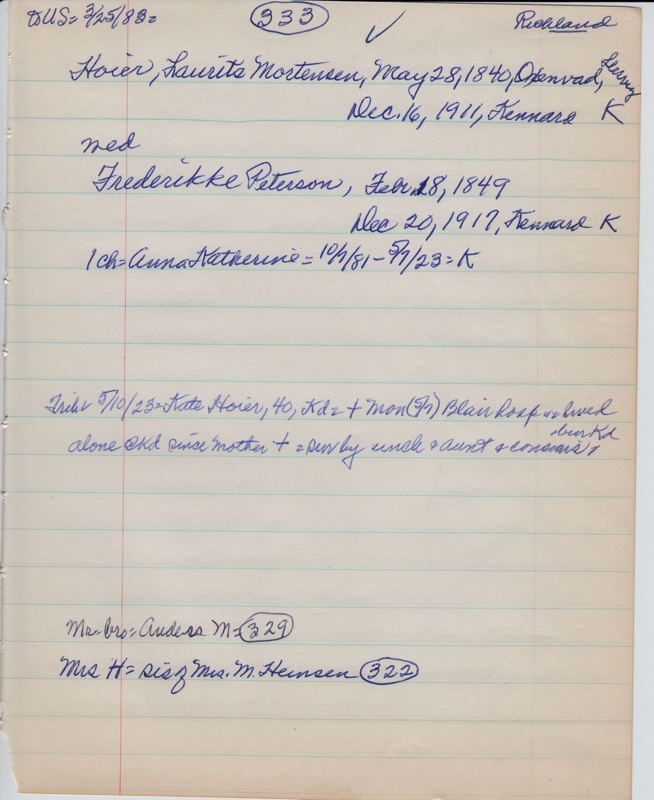 to US = 3/25/83 = 333 ✓ Richland
Hoier, Laurits Mortensen, May 28, 1840, Oxenvad,
Dec. 16, 1911, Kennard K
med
Frederikke Peterson, Febr. 18, 1849
Dec 20, 1917, Kennard K
1 ch = Anna Katherine = 10/7/81 - 5/7/23 = K
Trib = 5/10/23 = Kate Hoier, 40, Kd = + Mon (5/7) Blair hosp = lived
bur Kd
alone @ Kd since mother + = surv by uncle & aunt & cousins
Mr = bro = Anders M = 329
Mrs H = sis of Mrs. M. Heinsen 322